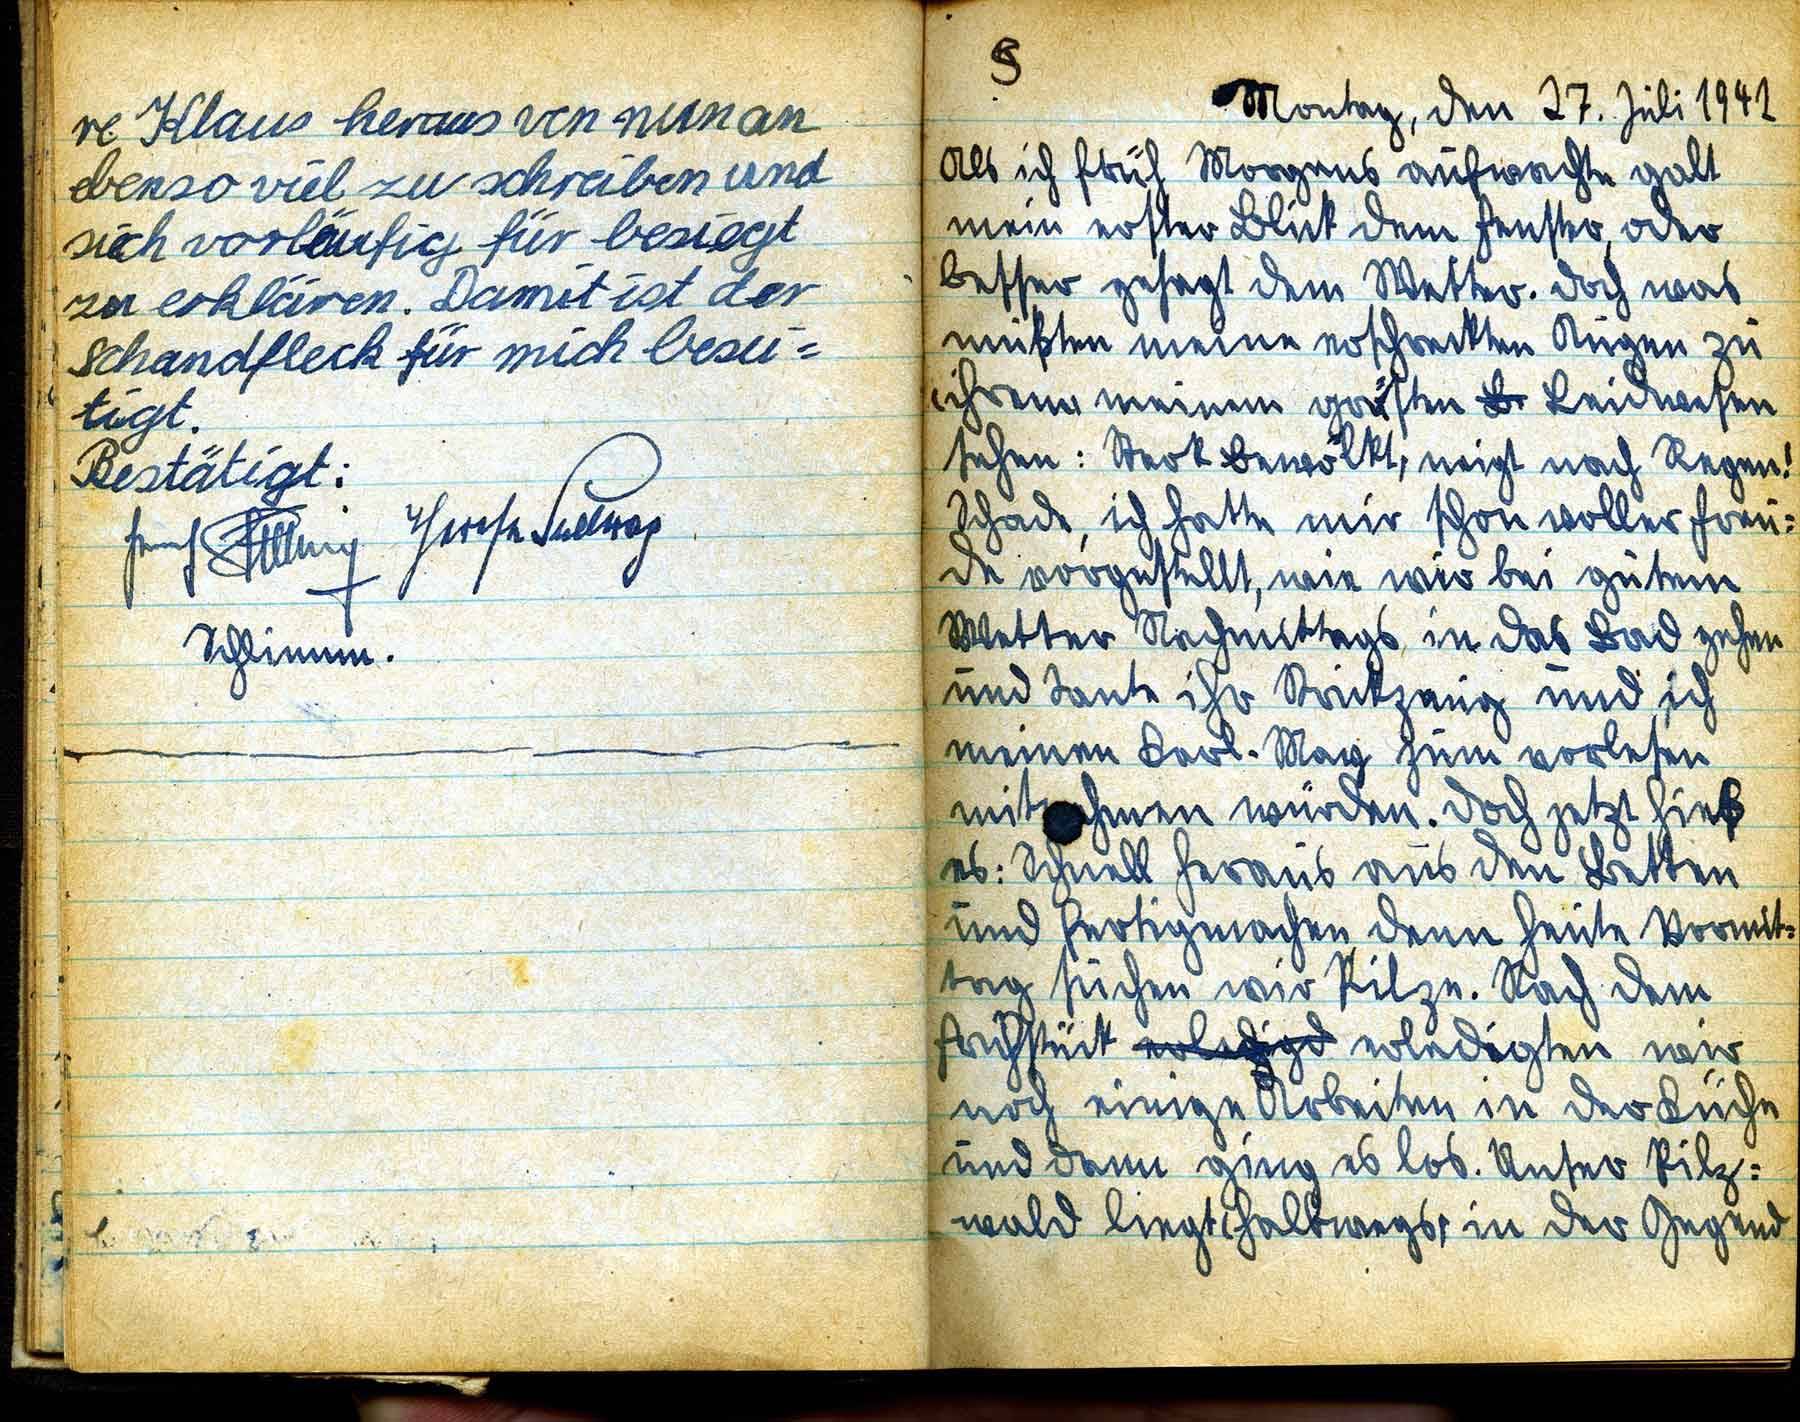 re Klaus heraus von nun an
ebenso viel zu schreiben und
sich vorläufig für besiegt
zu erklären. Damit ist der
Schandfleck für mich besei=
tigt.
Bestätigt:
Schlimm.
Montag, den 27. Juli 1942
Als ich früh Morgens aufwachte galt
mein erster Blick dem Fenster, oder
besser gesagt dem Wetter. Doch was
mußten meine erschreckten Augen zu
ihrem meinem größten Leidwesen
sehen: Stark bewölkt, neigt nach Regen!
Schade, ich hatte mir schon voller Freu=
de vorgestellt, wie wir bei gutem
Wetter Nachmittags in das Bad gehen
und Tante ihr Strickzeug und ich
meinen Karl-May zum vorlesen
mitnehmen würden. Doch jetzt hieß
es: Schnell heraus aus den Betten
und fertigmachen denn heute Vormit=
tag suchen wir Pilze. Nach dem
Frühstück erledigd erledigten wir
noch einige Arbeiten in der Küche
und dann ging es los. Unser Pilz=
wald liegt halbwegs, in der Gegend